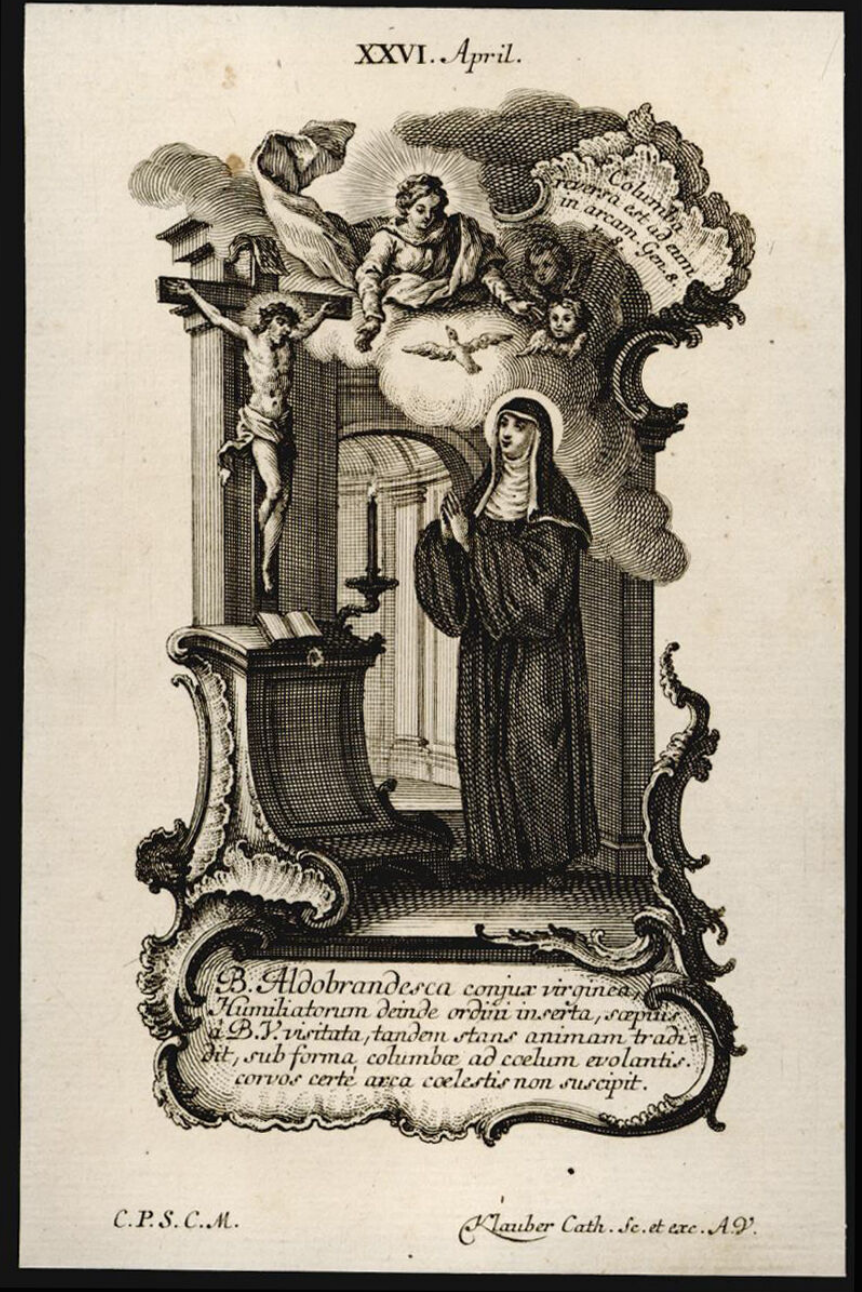 XXVI. April.
Columba
reversa est ad eum
in arcam. Gen. 8.
v. 8.
B. Aldobrandesca conjux virginea,
Humiliatorum deinde ordini inserta, sæpius
â B.V. visitata, tandem stans animam tradi=
dit, sub forma columbæ ad cœlum evolantis.
corvos certè arca cœlestis non suscipit.
C. P. S. C. M.
Klauber Cath. Sc. et exc. A.V.